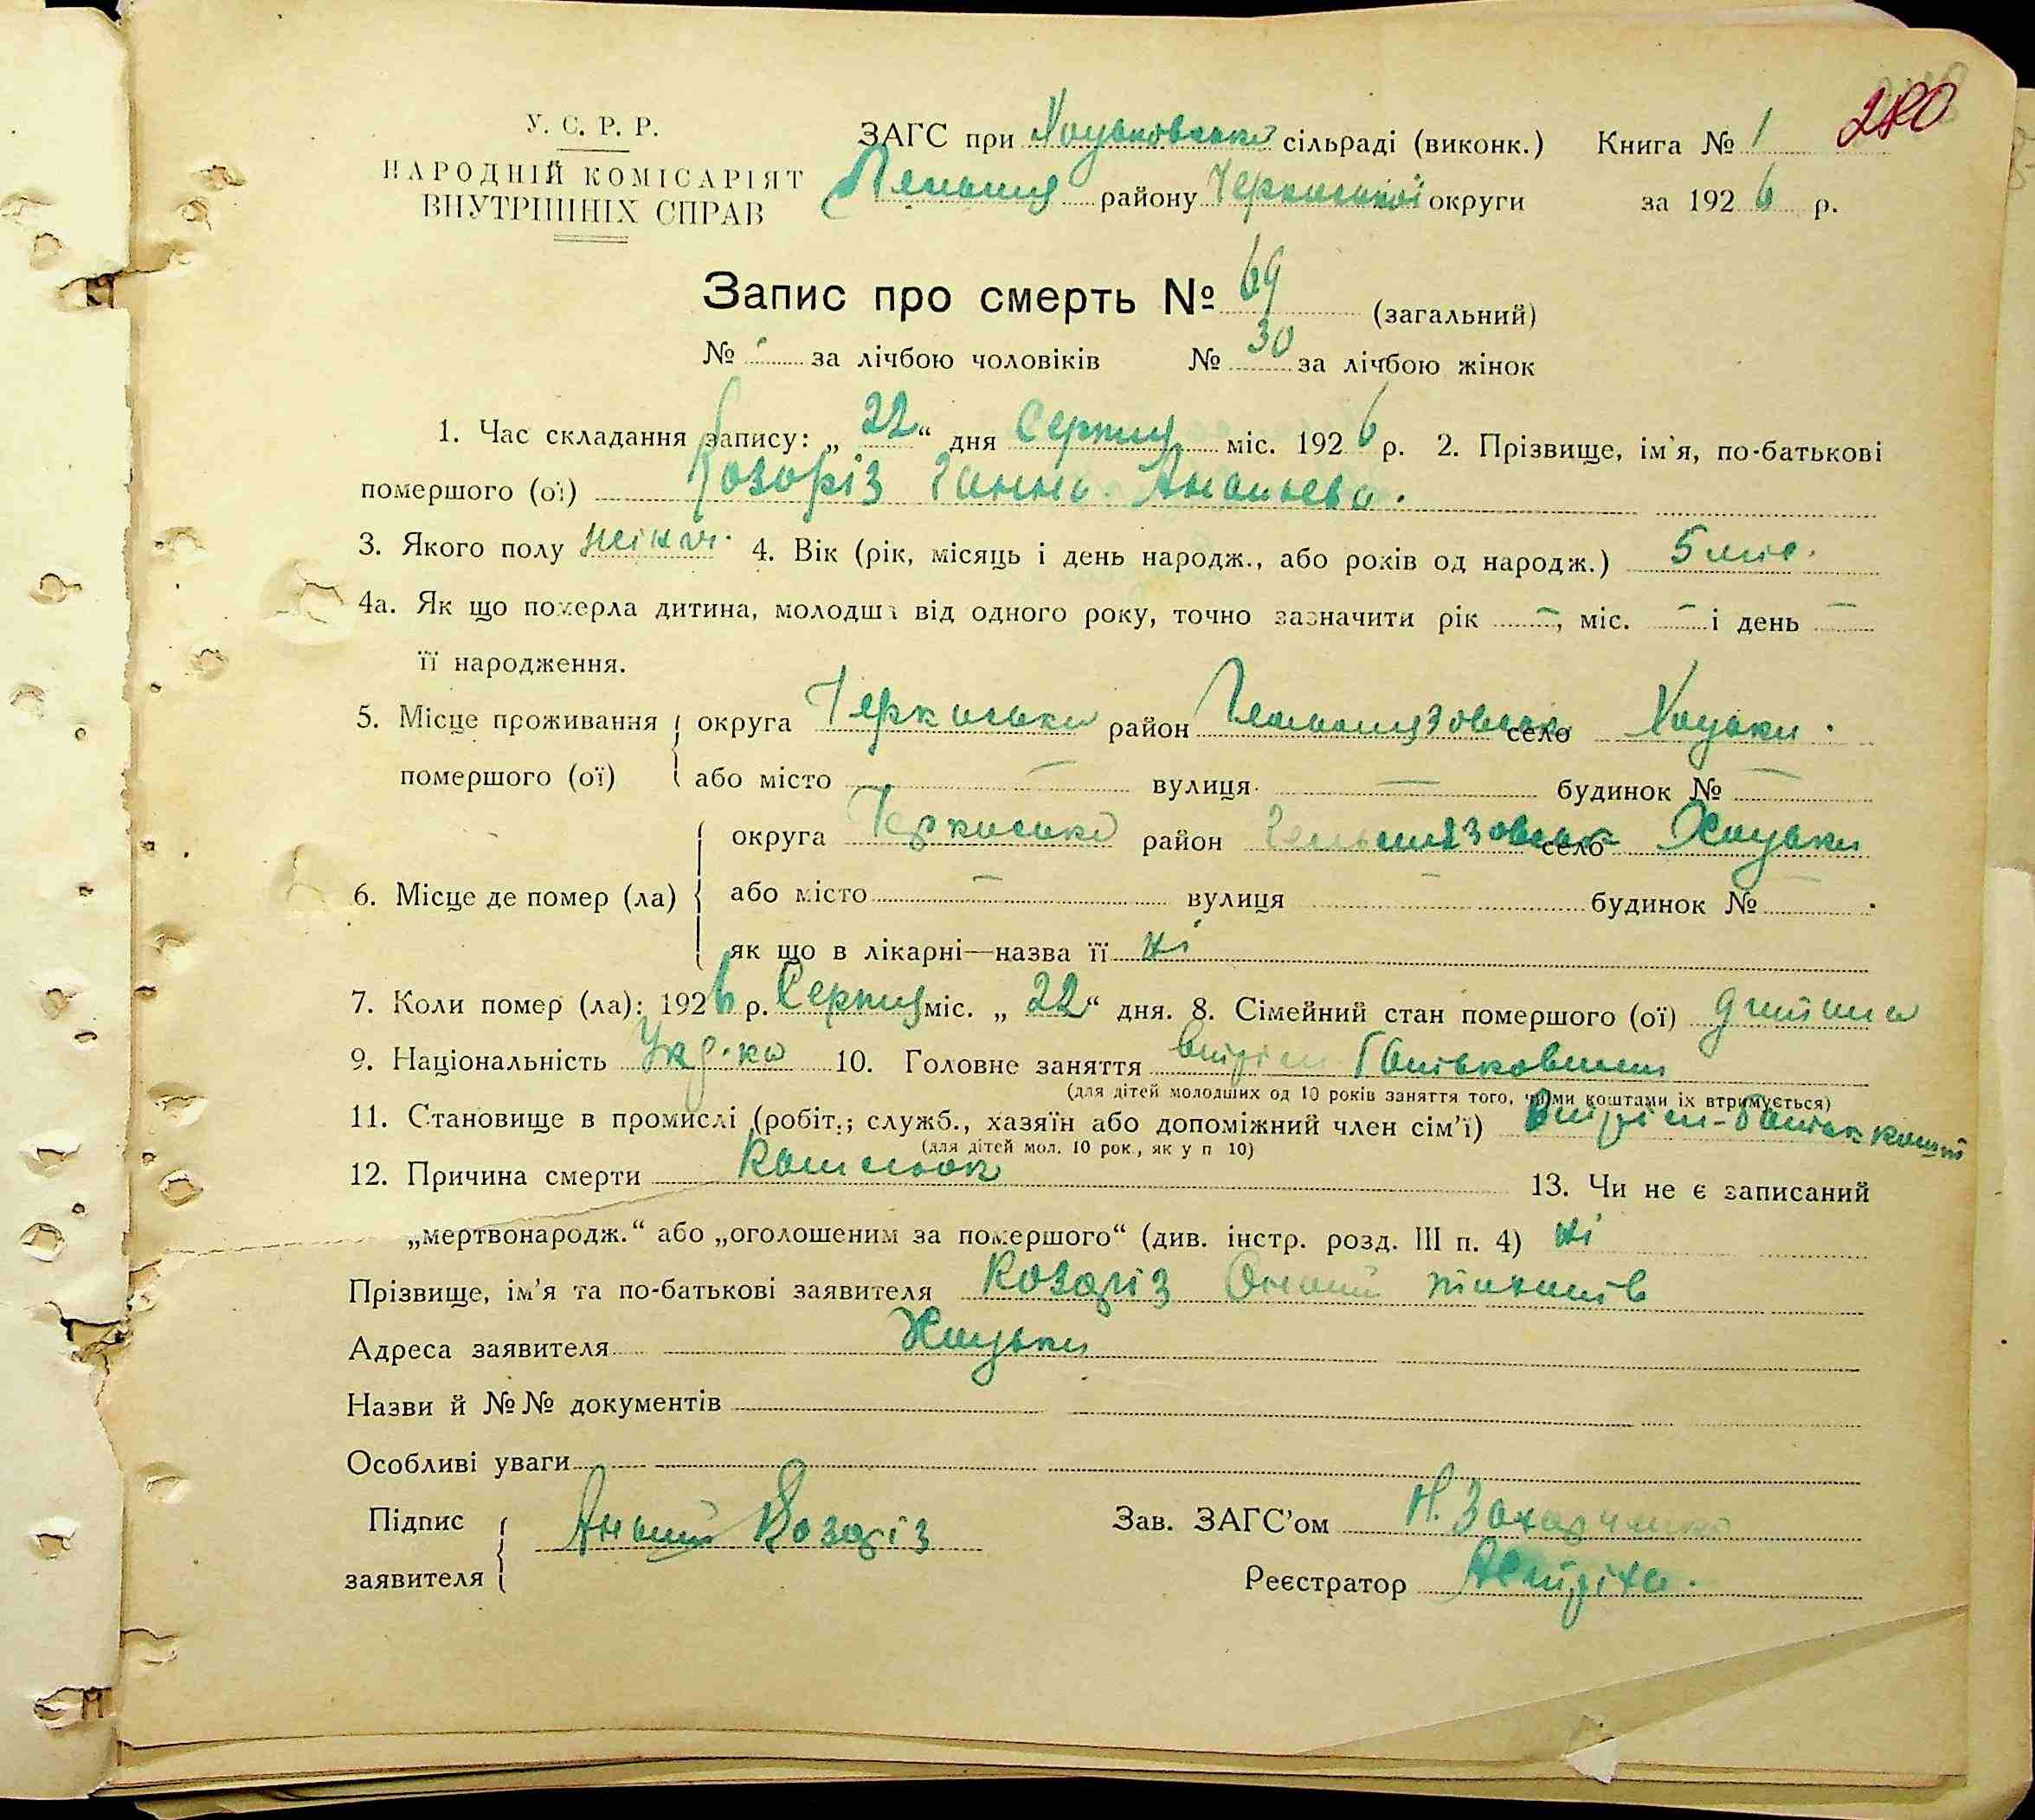 280
У. С. Р. Р.
НАРОДНІЙ КОМІСАРІЯТ
ВНУТРІШНІХ СПРАВ
ЗАГС при Хоцьковській сільраді (виконк.) Книга № 1
району Черкаської округи за 1926 р.
Запис про смерть № 69 (загальний)
№ за лічбою чоловіків № 30 за лічбою жінок
1. Час складання запису: „ 22 “ дня Серпня міс. 1926 р. 2. Прізвище, ім'я, по-батькові
помершого (ої) Козоріз Ганна Ананьева.
3. Якого полу жіноч. 4. Вік (рік, місяць і день народж., або років од народж.) 5 міс.
4а. Як що померла дитина, молодша від одного року, точно зазначити рік —, міс. — і день —
її народження.
5. Місце проживання округа Черкаська район село Хоцьки.
помершого (ої) або місто — вулиця — будинок № —
округа Черкаська район село Хоцьки
6. Місце де помер (ла) або місто — вулиця — будинок № —
як що в лікарні—назва її ні
7. Коли помер (ла): 1926 р. Серпня міс. „ 22 “ дня. 8. Сімейний стан помершого (ої) дитина
9. Національність Укр-ка 10. Головне заняття
(для дітей молодших од 10 років заняття того, чиїми коштами їх втримується)
11. Становище в промислі (робіт.; служб., хазяїн або допоміжний член сім'ї)
(для дітей мол. 10 рок., як у п 10)
12. Причина смерти Кашльок 13. Чи не є записаний
„мертвонародж.“ або „оголошеним за помершого“ (див. інстр. розд. III п. 4) ні
Прізвище, ім'я та по-батькові заявителя Козоріз Онаній
Адреса заявителя Хоцьки
Назви й №№ документів
Особливі уваги
Підпис Ананий Козоріз Зав. ЗАГС'ом Н. Захарченко
заявителя Реєстратор